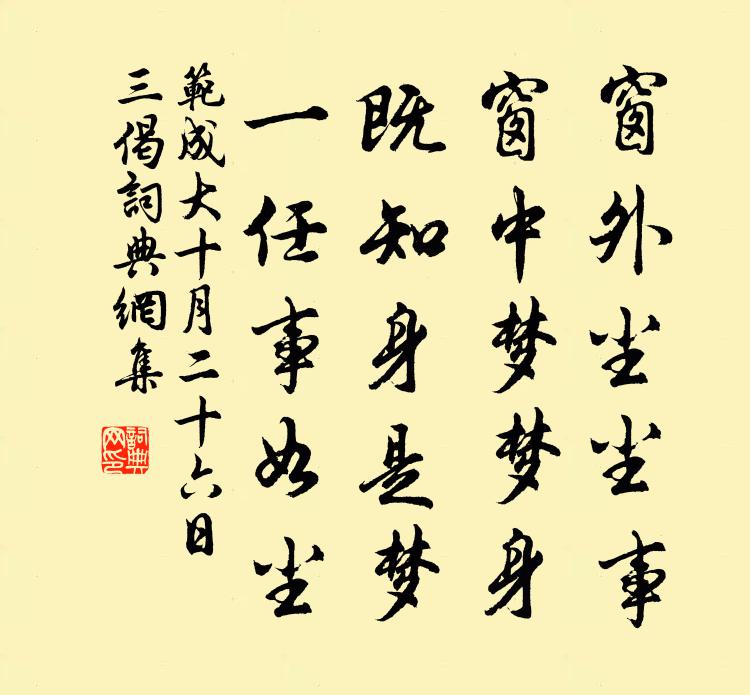 窗外尘尘事
窗中梦梦身
既知身是梦
一任事如尘
範成大十月二十六日
三偈詞典網集
詞典
网印